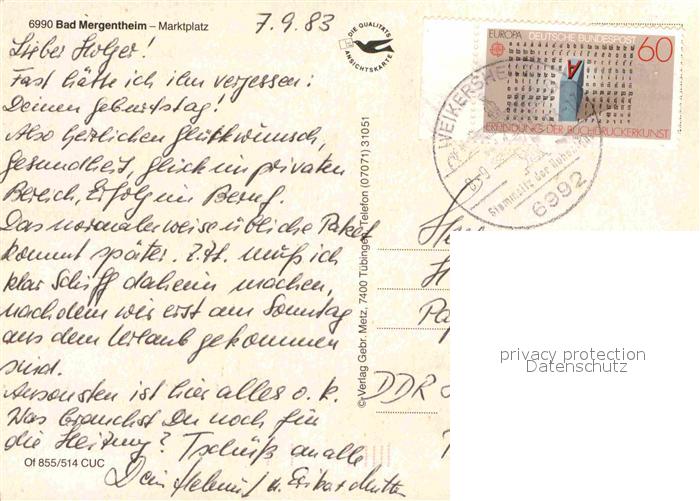 6990 Bad Mergentheim – Marktplatz
7.9.83
Lieber Holger!
Fast hätte ich ihn vergessen:
Deinen Geburtstag!
Also herzlichen Glückwunsch,
Gesundheit, Glück im privaten
Bereich, Erfolg im Beruf.
Das normalerweise übliche Paket
kommt später. Z.Zt. muß ich
klar Schiff daheim machen,
nachdem wir erst am Sonntag
aus dem Urlaub gekommen
sind.
Ansonsten ist hier alles o.k.
Was brauchst Du noch für
die Heizung? Tschüß an alle
Dein Helmut u.
Of 855/514 CUC
© Verlag Gebr. Metz, 7400 Tübingen, Telefon (07071) 31051
DIE QUALITÄTS
ANSICHTSKARTE
EUROPA DEUTSCHE BUNDESPOST
60
A
ERFINDUNG DER BUCHDRUCKERKUNST
WEIKERSHEIM
Stammsitz der Hohenlohe
6992
DDR
privacy protection
Datenschutz